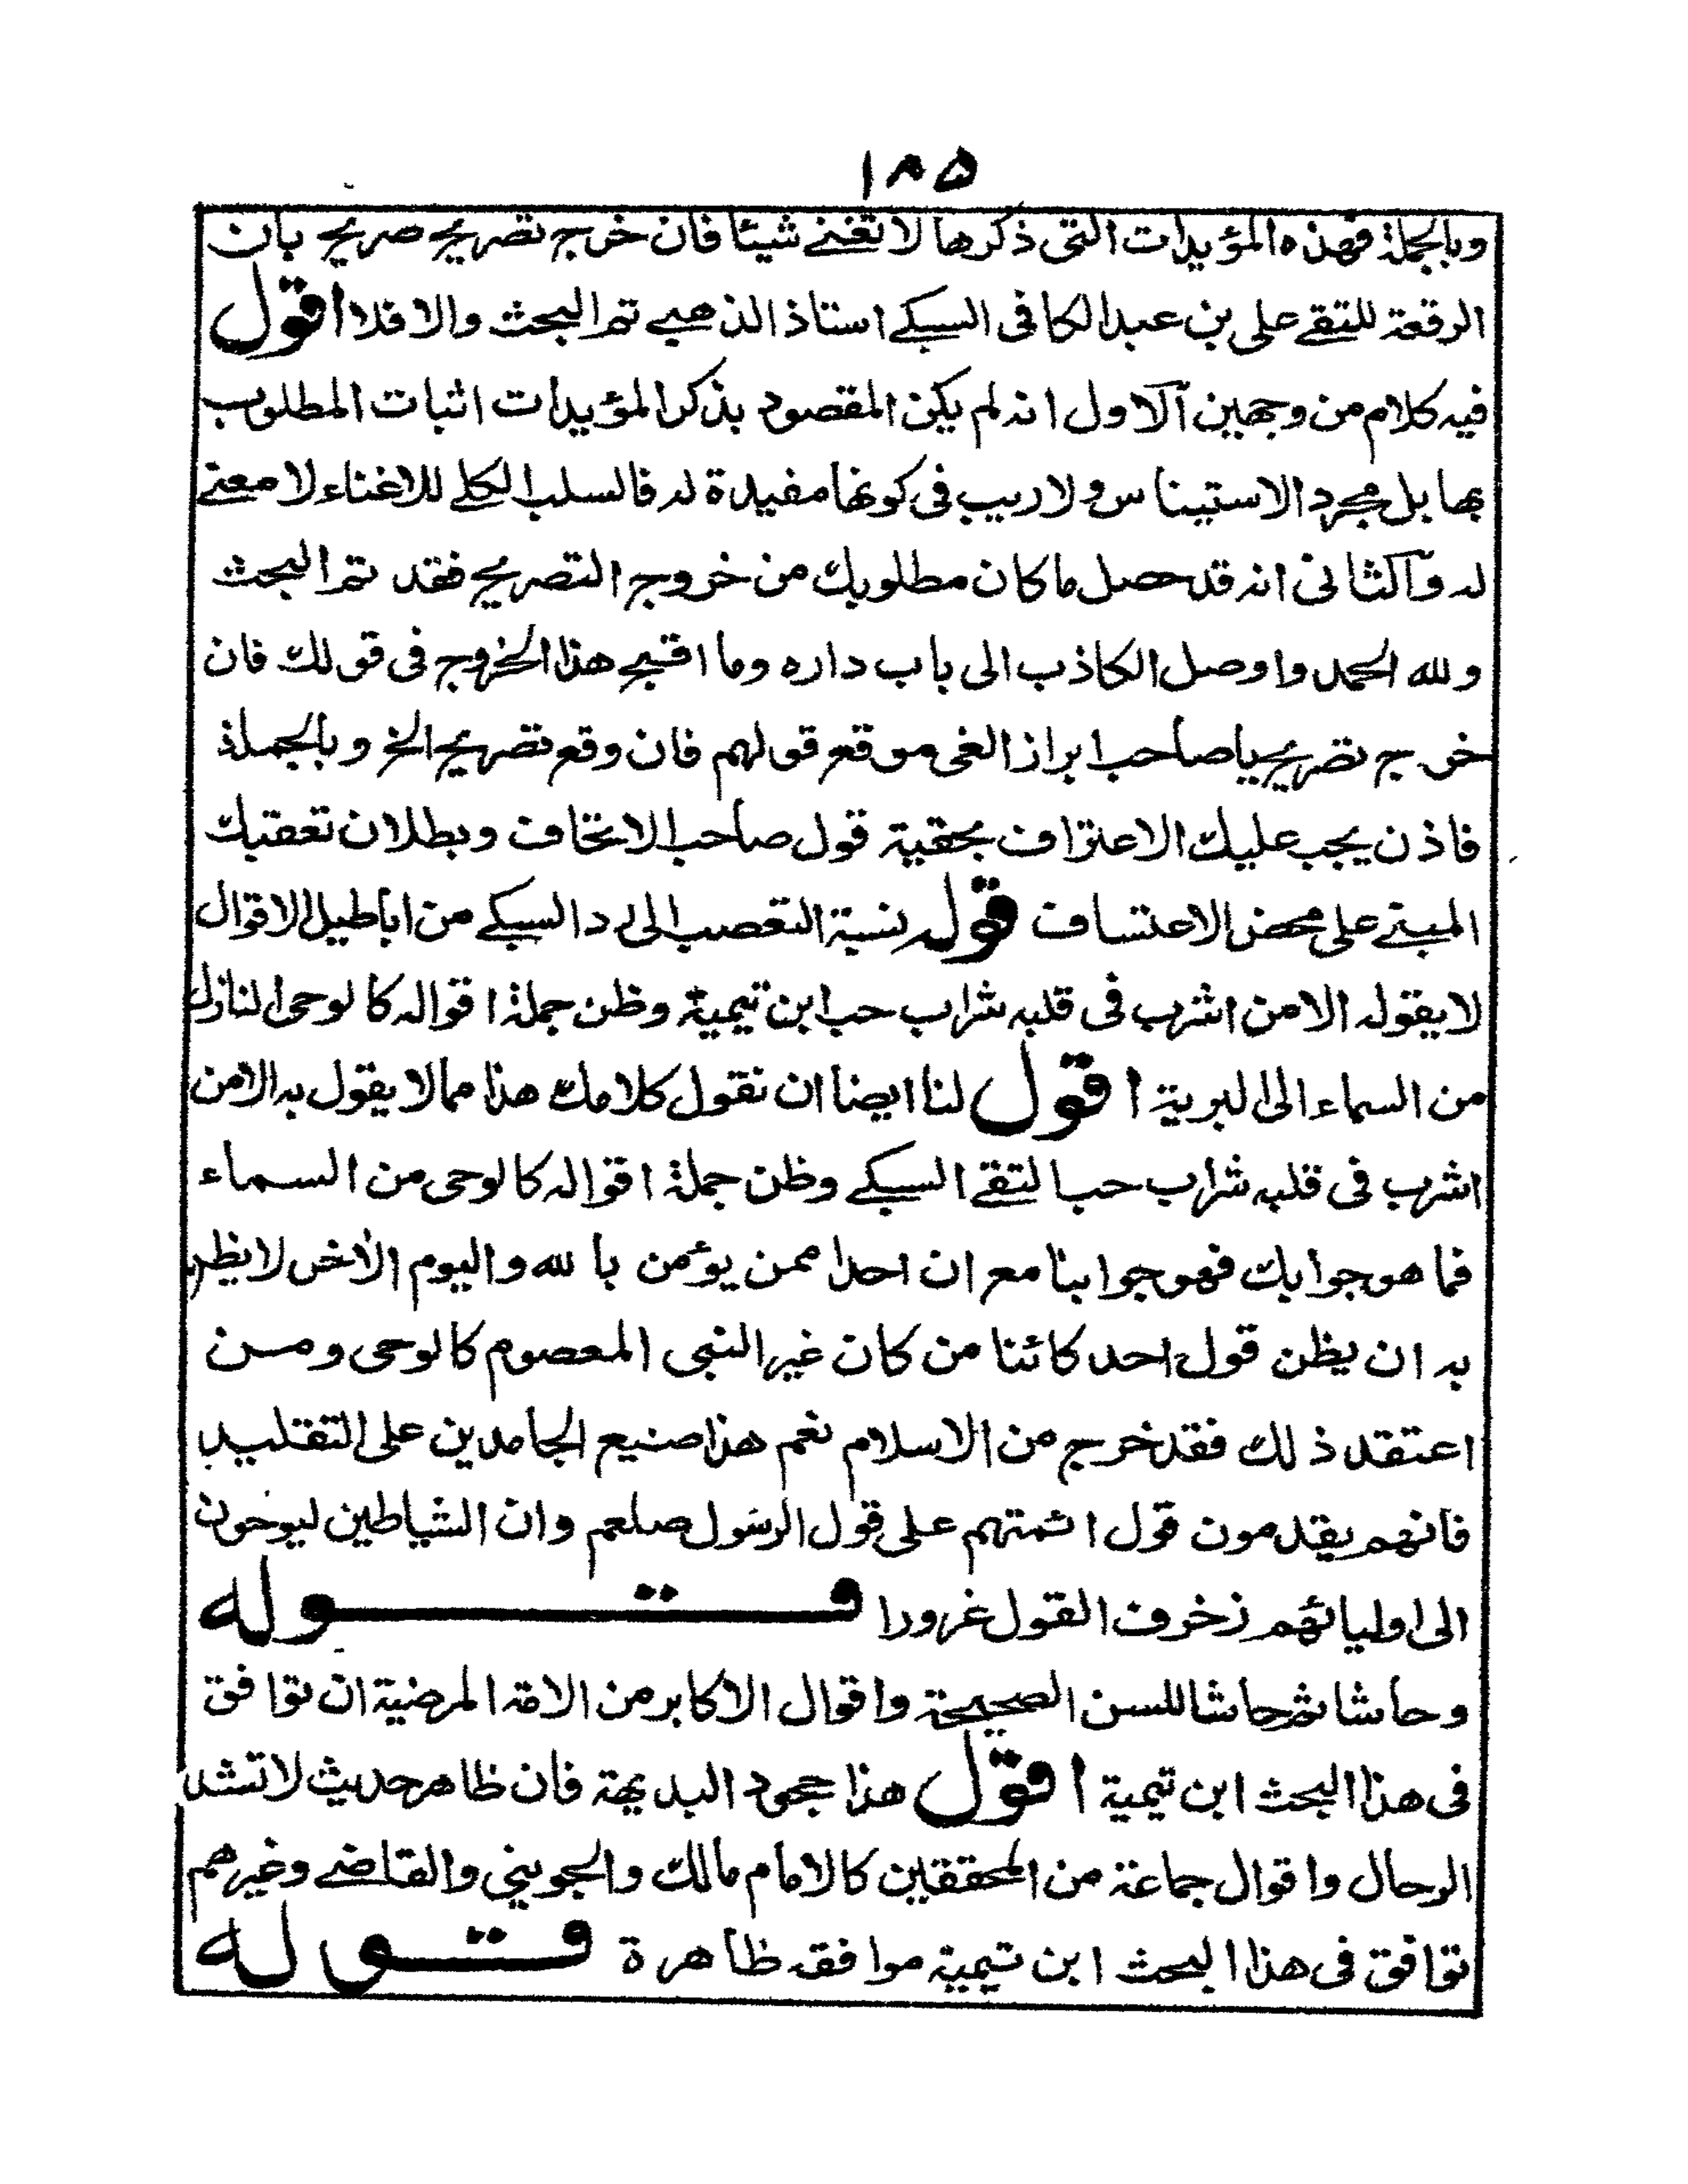 ١٨٥
وبالجملة فهذه المؤيدات التى ذكرها لا تغنے شيئا فان خرج تصريح صريح بان
الرقعة للتقے على بن عبد الكافى السبكے استاذ الذهبے تم البحث والا فلا اقول
فيه كلام من وجهين آلاول انه لم يكن المقصود بذكر المؤيدات اثبات المطلوب
بها بل مجرد الاستيناس ولا ريب فى كونها مفيدة له فالسلب الكلے للاغناء لا معنے
له وآلثانى انه قد حصل ما كان مطلوبك من خروج التصريح فقد تم البحث
ولله الحمد واوصل الكاذب الى باب داره وما اقبح هذا الخروج فى قولك فان
خرج تصريح يا صاحب ابراز الغى موقع قولهم فان وقع تصريح الخ وبالجملة
فاذن يجب عليك الاعتراف بحقية قول صاحب الاتحاف وبطلان تعقبك
المبنے على محض الاعتساف قوله نسبة التعصب الى رد السبكے من اباطيل الاقوال
لا يقوله الا من اشرب فى قلبه شراب حب ابن تيمية وظن جملة اقواله كالوحى النازل
من السماء الى البرية اقول لنا ايضا ان نقول كلامك هذا مما لا يقول به الا من
اشرب فى قلبه شراب حب التقے السبكے وظن جملة اقواله كالوحى من السماء
فما هو جوابك فهو جوابنا مع ان احدا ممن يؤمن بالله واليوم الاخر لا يظن
به ان يظن قول احد كائنا من كان غير النبى المعصوم كالوحى ومن
اعتقد ذلك فقد خرج من الاسلام نعم هذا صنيع الجامدين على التقليد
فانهم يقدمون قول ائمتهم على قول الرسول صلعم وان الشياطين ليوحون
الى اوليائهم زخرف القول غرورا قوله
وحاشا ثم حاشا للسنن الصحيحة واقوال الاكابر من الامة المرضية ان توافق
فى هذا البحث ابن تيمية اقول هذا جحود البديهة فان ظاهر حديث لا تشد
الرحال واقوال جماعة من المحققين كالامام مالك والجوينى والقاضے وغيرهم
توافق فى هذا البحث ابن تيمية موافقه ظاهرة قوله